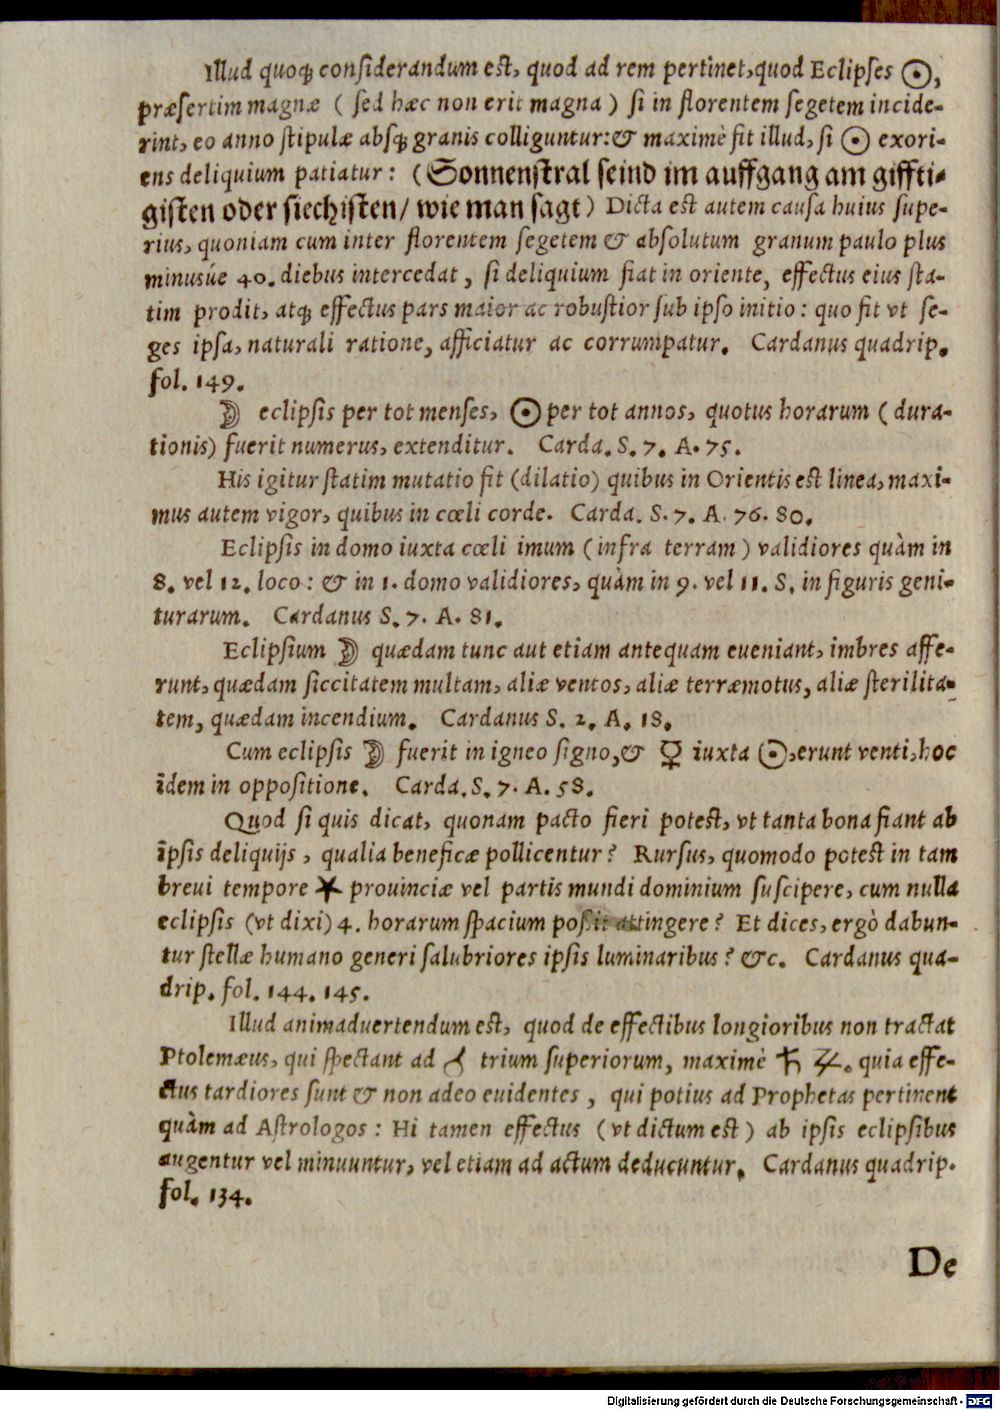 Illud quoq; considerandum est, quod ad rem pertinet, quod Eclipses ☉,
præsertim magnæ ( sed hæc non erit magna ) si in florentem segetem incide-
rint, eo anno stipulæ absq; granis colliguntur: & maximè fit illud, si ☉ exori-
ens deliquium patiatur: (Sonnenstral seind im auffgang am giffti-
gisten oder siechisten/ wie man sagt) Dicta est autem causa huius supe-
rius, quoniam cum inter florentem segetem & absolutum granum paulo plus
minusúe 40. diebus intercedat, si deliquium fiat in oriente, effectus eius sta-
tim prodit, atq; effectus pars maior ac robustior sub ipso initio: quo fit vt se-
ges ipsa, naturali ratione, afficiatur ac corrumpatur. Cardanus quadrip.
fol. 149.
☽ eclipsis per tot menses, ☉ per tot annos, quotus horarum ( dura-
tionis) fuerit numerus, extenditur. Carda. S. 7. A. 75.
His igitur statim mutatio fit (dilatio) quibus in Orientis est linea, maxi-
mus autem vigor, quibus in cœli corde. Carda. S. 7. A. 76. 80.
Eclipsis in domo iuxta cœli imum ( infra terram ) validiores quàm in
8. vel 12. loco: & in 1. domo validiores, quàm in 9. vel 11. S. in figuris geni-
turarum. Cardanus S. 7. A. 81.
Eclipsium ☽ quædam tunc aut etiam antequam eueniant, imbres affe-
runt, quædam siccitatem multam, aliæ ventos, aliæ terræmotus, aliæ sterilita-
tem, quædam incendium. Cardanus S. 2. A. 18.
Cum eclipsis ☽ fuerit in igneo signo, & ☿ iuxta ☉, erunt venti, hoc
idem in oppositione. Carda. S. 7. A. 58.
Quod si quis dicat, quonam pacto fieri potest, vt tanta bona fiant ab
ipsis deliquijs, qualia beneficæ pollicentur? Rursus, quomodo potest in tam
breui tempore ★ prouinciæ vel partis mundi dominium suscipere, cum nulla
eclipsis (vt dixi) 4. horarum spacium possit attingere? Et dices, ergò dabun-
tur stellæ humano generi salubriores ipsis luminaribus? &c. Cardanus qua-
drip. fol. 144. 145.
Illud animaduertendum est, quod de effectibus longioribus non tractat
Ptolemæus, qui spectant ad ☌ trium superiorum, maximè ♄ ♃. quia effe-
ctus tardiores sunt & non adeo euidentes, qui potius ad Prophetas pertinent
quàm ad Astrologos: Hi tamen effectus (vt dictum est) ab ipsis eclipsibus
augentur vel minuuntur, vel etiam ad actum deducuntur. Cardanus quadrip.
fol. 134.
De
Digitalisierung gefördert durch die Deutsche Forschungsgemeinschaft - DFG